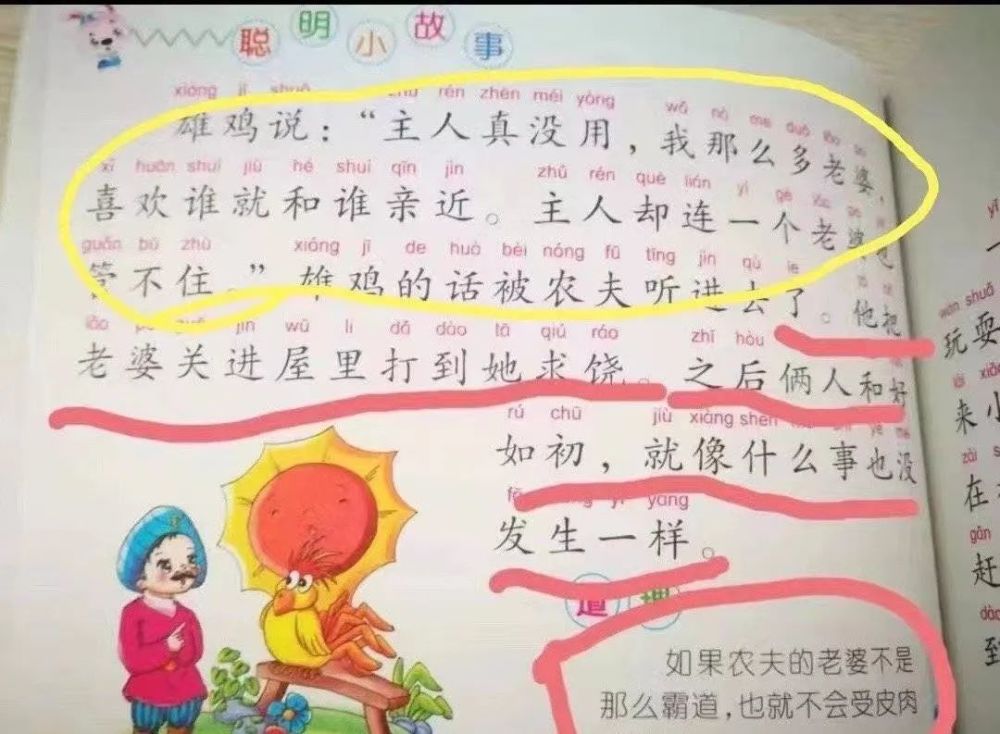 聪明小故事
xióng jī shuō zhǔ rén zhēn méi yòng wǒ nà me duō lǎo
雄鸡说：“主人真没用，我那么多老婆，
xǐ huān shuí jiù hé shuí qīn jìn zhǔ rén què lián yí gè lǎo
喜欢谁就和谁亲近。主人却连一个老婆也
guǎn bú zhù xióng jī de huà bèi nóng fū tīng jìn qù le
管不住。”雄鸡的话被农夫听进去了。他把
lǎo jìn wū lǐ dǎ dào tā qiú ráo zhī hòu
老婆关进屋里打到她求饶。之后俩人和好
rú chū jiù xiàng shén
如初，就像什么事也没
yī yàng
发生一样。
道理
如果农夫的老婆不是
那么霸道，也就不会受皮肉
一
wán shuǎ
玩耍
来小
zài
在
gǎn
赶
dào
到